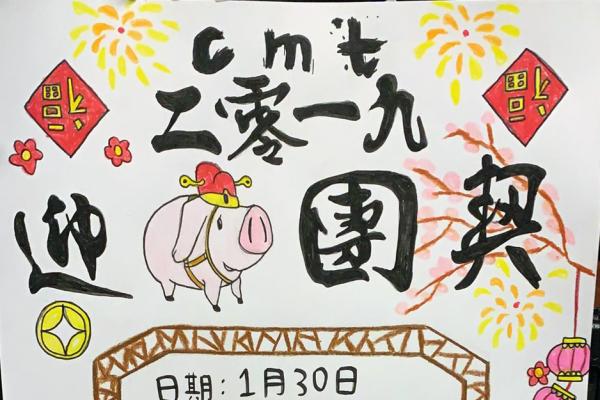 cmt
福 二零一九 福
迎 團契
日期：1月30日